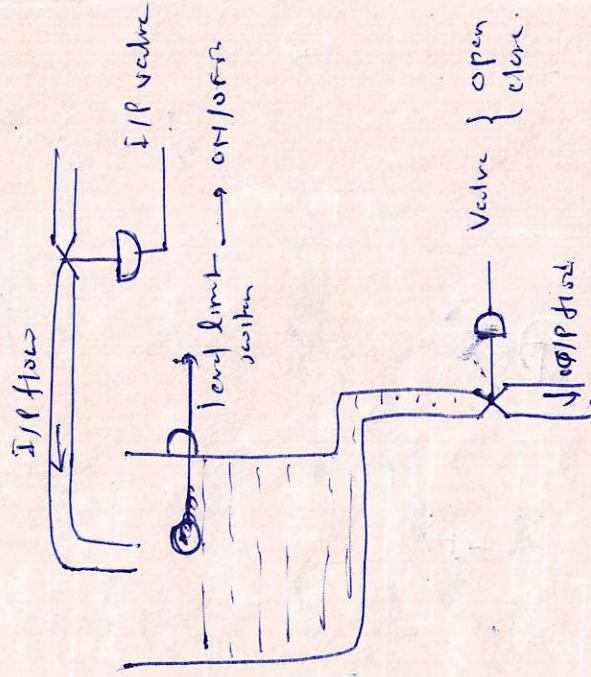 I/P flow
I/P valve
level limit → ON/OFF
switch
Valve { open
close.
↓ O/P flow